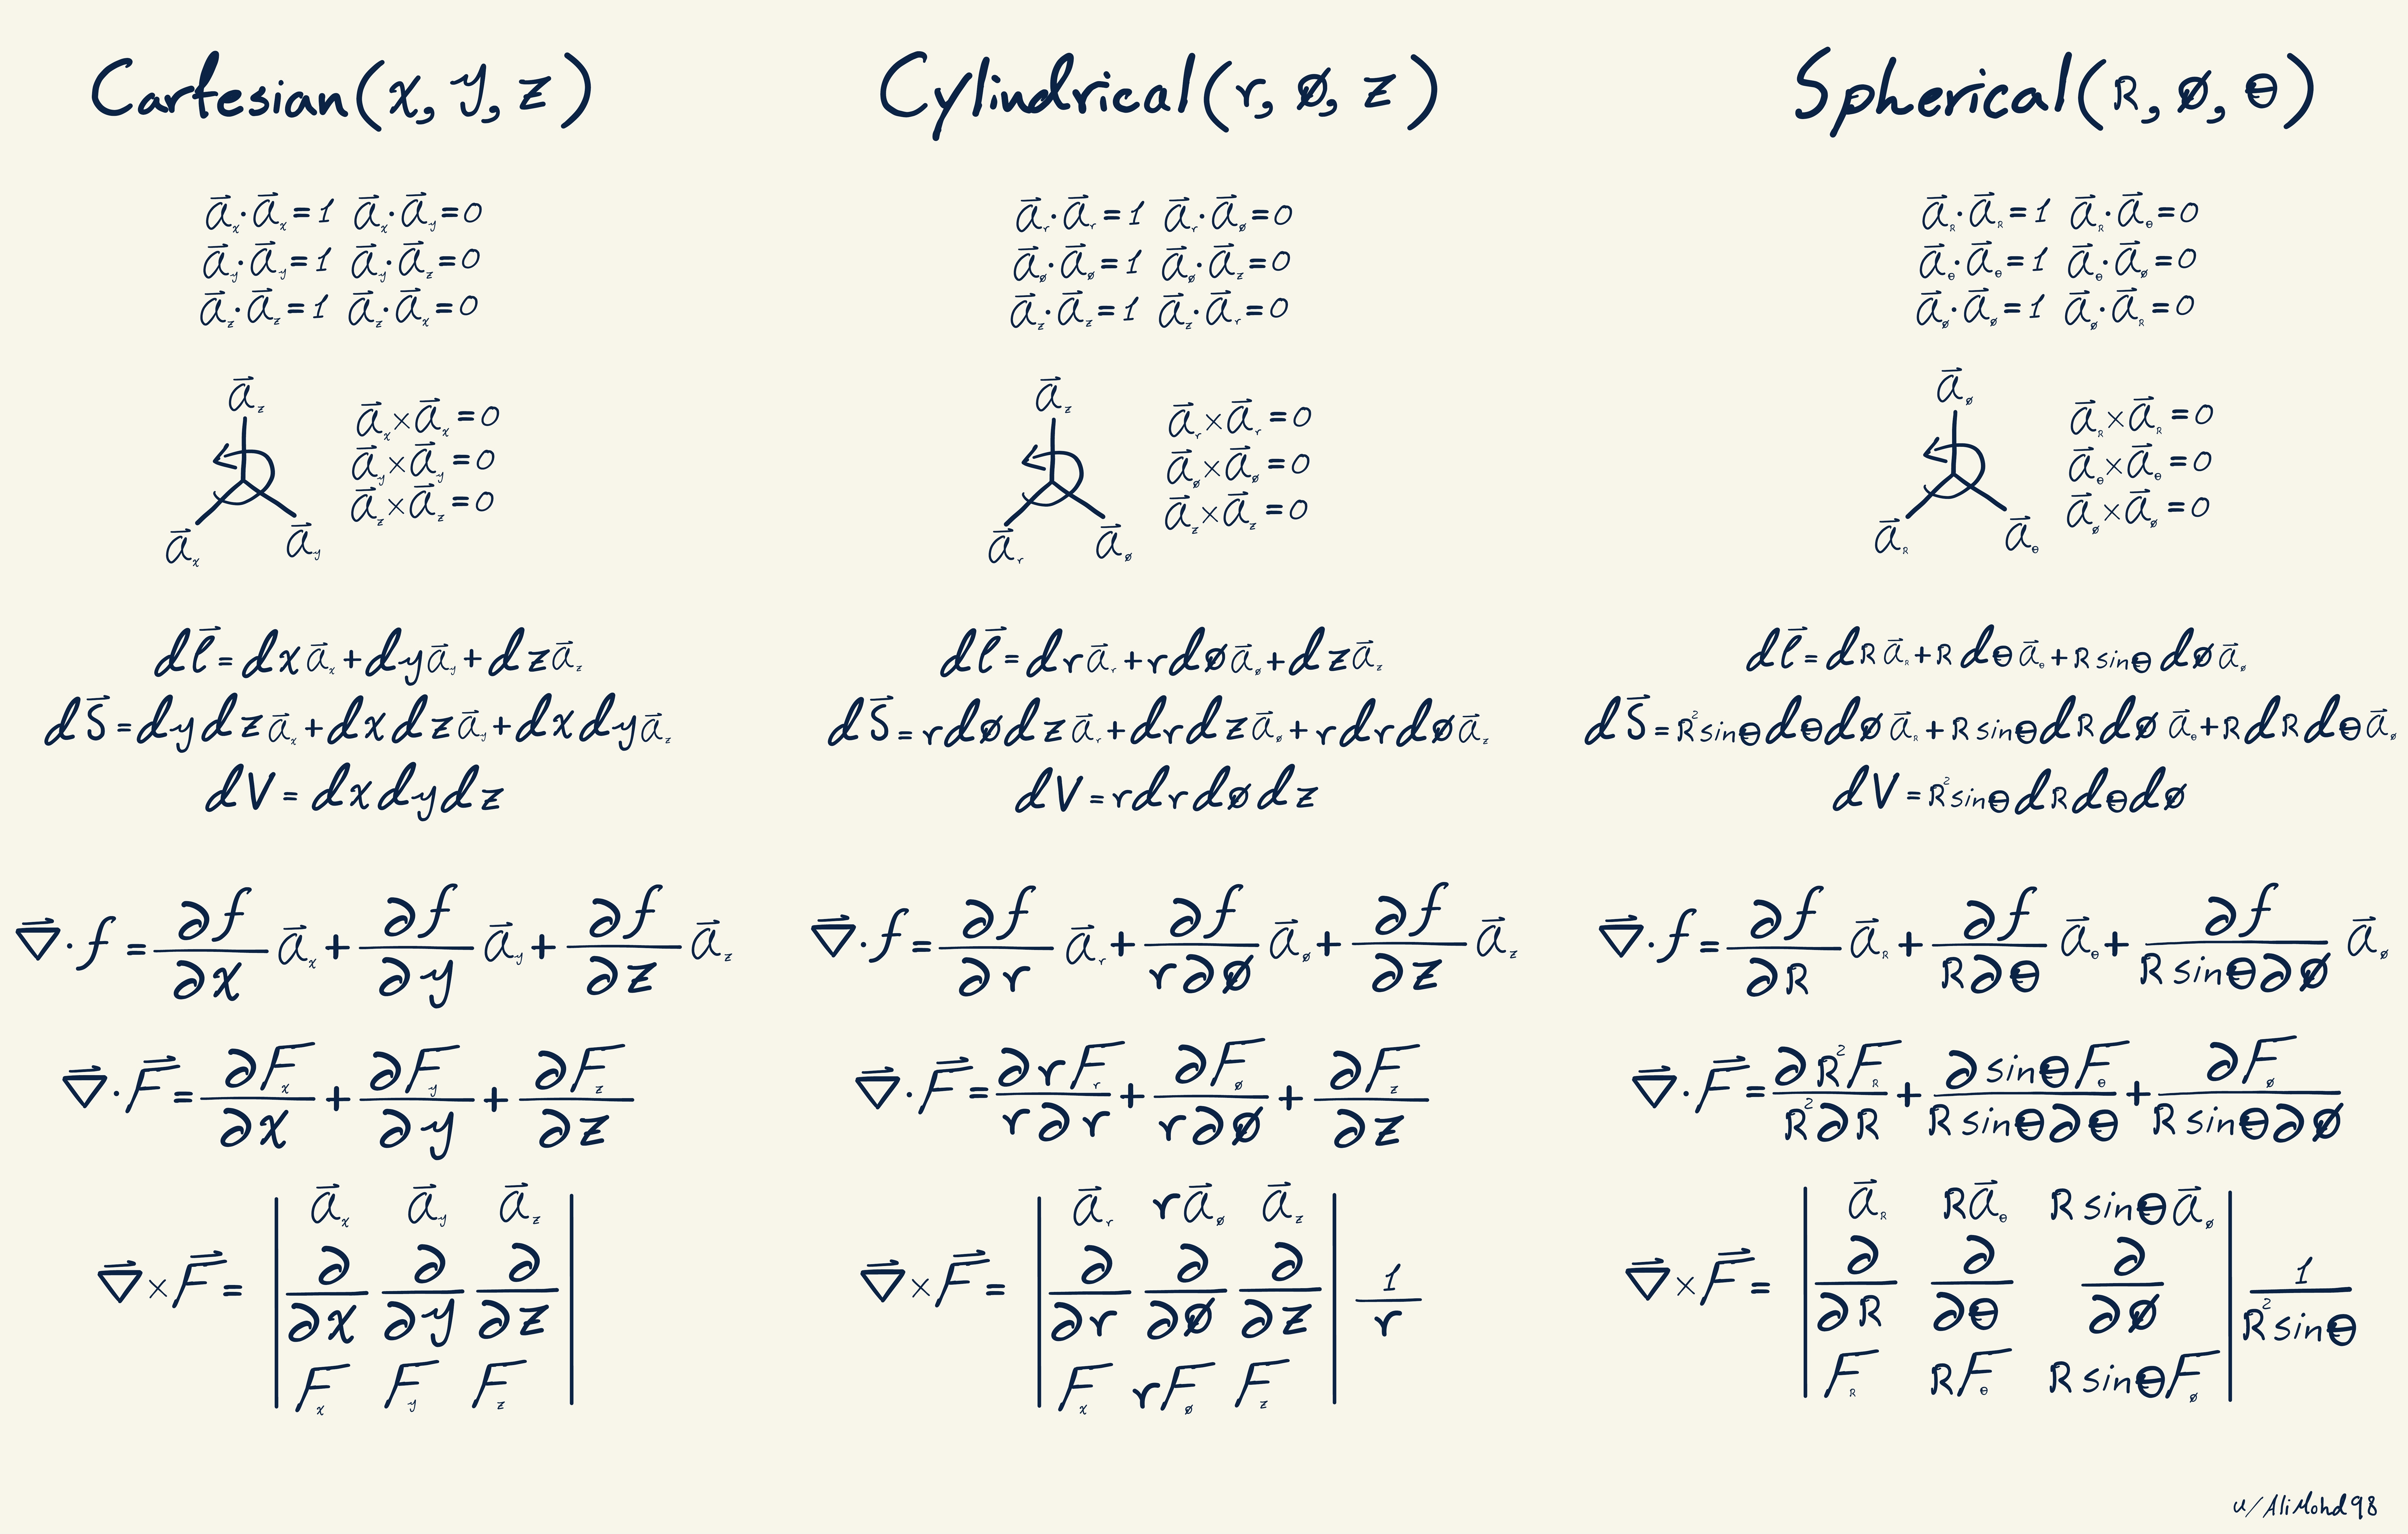 Cartesian(x, y, z)
a⃗ₓ·a⃗ₓ=1 a⃗ₓ·a⃗_y=0
a⃗_y·a⃗_y=1 a⃗_y·a⃗_z=0
a⃗_z·a⃗_z=1 a⃗_z·a⃗ₓ=0
a⃗_z
a⃗ₓ a⃗_y
a⃗ₓ×a⃗ₓ=0
a⃗_y×a⃗_y=0
a⃗_z×a⃗_z=0
dl⃗=dx a⃗ₓ+dy a⃗_y+dz a⃗_z
dS⃗=dydz a⃗ₓ+dxdz a⃗_y+dxdy a⃗_z
dV=dxdydz
∇⃗·f=∂f/∂x a⃗ₓ+∂f/∂y a⃗_y+∂f/∂z a⃗_z
∇⃗·F⃗=∂Fₓ/∂x+∂F_y/∂y+∂F_z/∂z
∇⃗×F⃗=
| a⃗ₓ a⃗_y a⃗_z |
| ∂/∂x ∂/∂y ∂/∂z |
| Fₓ F_y F_z |
Cylindrical(r, ø, z)
a⃗_r·a⃗_r=1 a⃗_r·a⃗_ø=0
a⃗_ø·a⃗_ø=1 a⃗_ø·a⃗_z=0
a⃗_z·a⃗_z=1 a⃗_z·a⃗_r=0
a⃗_z
a⃗_r a⃗_ø
a⃗_r×a⃗_r=0
a⃗_ø×a⃗_ø=0
a⃗_z×a⃗_z=0
dl⃗=dr a⃗_r+rdø a⃗_ø+dz a⃗_z
dS⃗=rdødz a⃗_r+drdz a⃗_ø+rdrdø a⃗_z
dV=rdrdødz
∇⃗·f=∂f/∂r a⃗_r+∂f/r∂ø a⃗_ø+∂f/∂z a⃗_z
∇⃗·F⃗=∂rF_r/r∂r+∂F_ø/r∂ø+∂F_z/∂z
∇⃗×F⃗=
| a⃗_r ra⃗_ø a⃗_z |
| ∂/∂r ∂/∂ø ∂/∂z | 1/r
| Fₓ rF_ø F_z |
Spherical(R, ø, θ)
a⃗_R·a⃗_R=1 a⃗_R·a⃗_θ=0
a⃗_θ·a⃗_θ=1 a⃗_θ·a⃗_ø=0
a⃗_ø·a⃗_ø=1 a⃗_ø·a⃗_R=0
a⃗_ø
a⃗_R a⃗_θ
a⃗_R×a⃗_R=0
a⃗_θ×a⃗_θ=0
a⃗_ø×a⃗_ø=0
dl⃗=dR a⃗_R+R dθ a⃗_θ+R sinθ dø a⃗_ø
dS⃗=R²sinθdθdø a⃗_R+R sinθdRdø a⃗_θ+RdRdθ a⃗_ø
dV=R²sinθdRdθdø
∇⃗·f=∂f/∂R a⃗_R+∂f/R∂θ a⃗_θ+∂f/R sinθ∂ø a⃗_ø
∇⃗·F⃗=∂R²F_R/R²∂R+∂sinθF_θ/R sinθ∂θ+∂F_ø/R sinθ∂ø
∇⃗×F⃗=
| a⃗_R Ra⃗_θ R sinθa⃗_ø |
| ∂/∂R ∂/∂θ ∂/∂ø | 1/R²sinθ
| F_R RF_θ R sinθF_ø |
u/AliMohd98